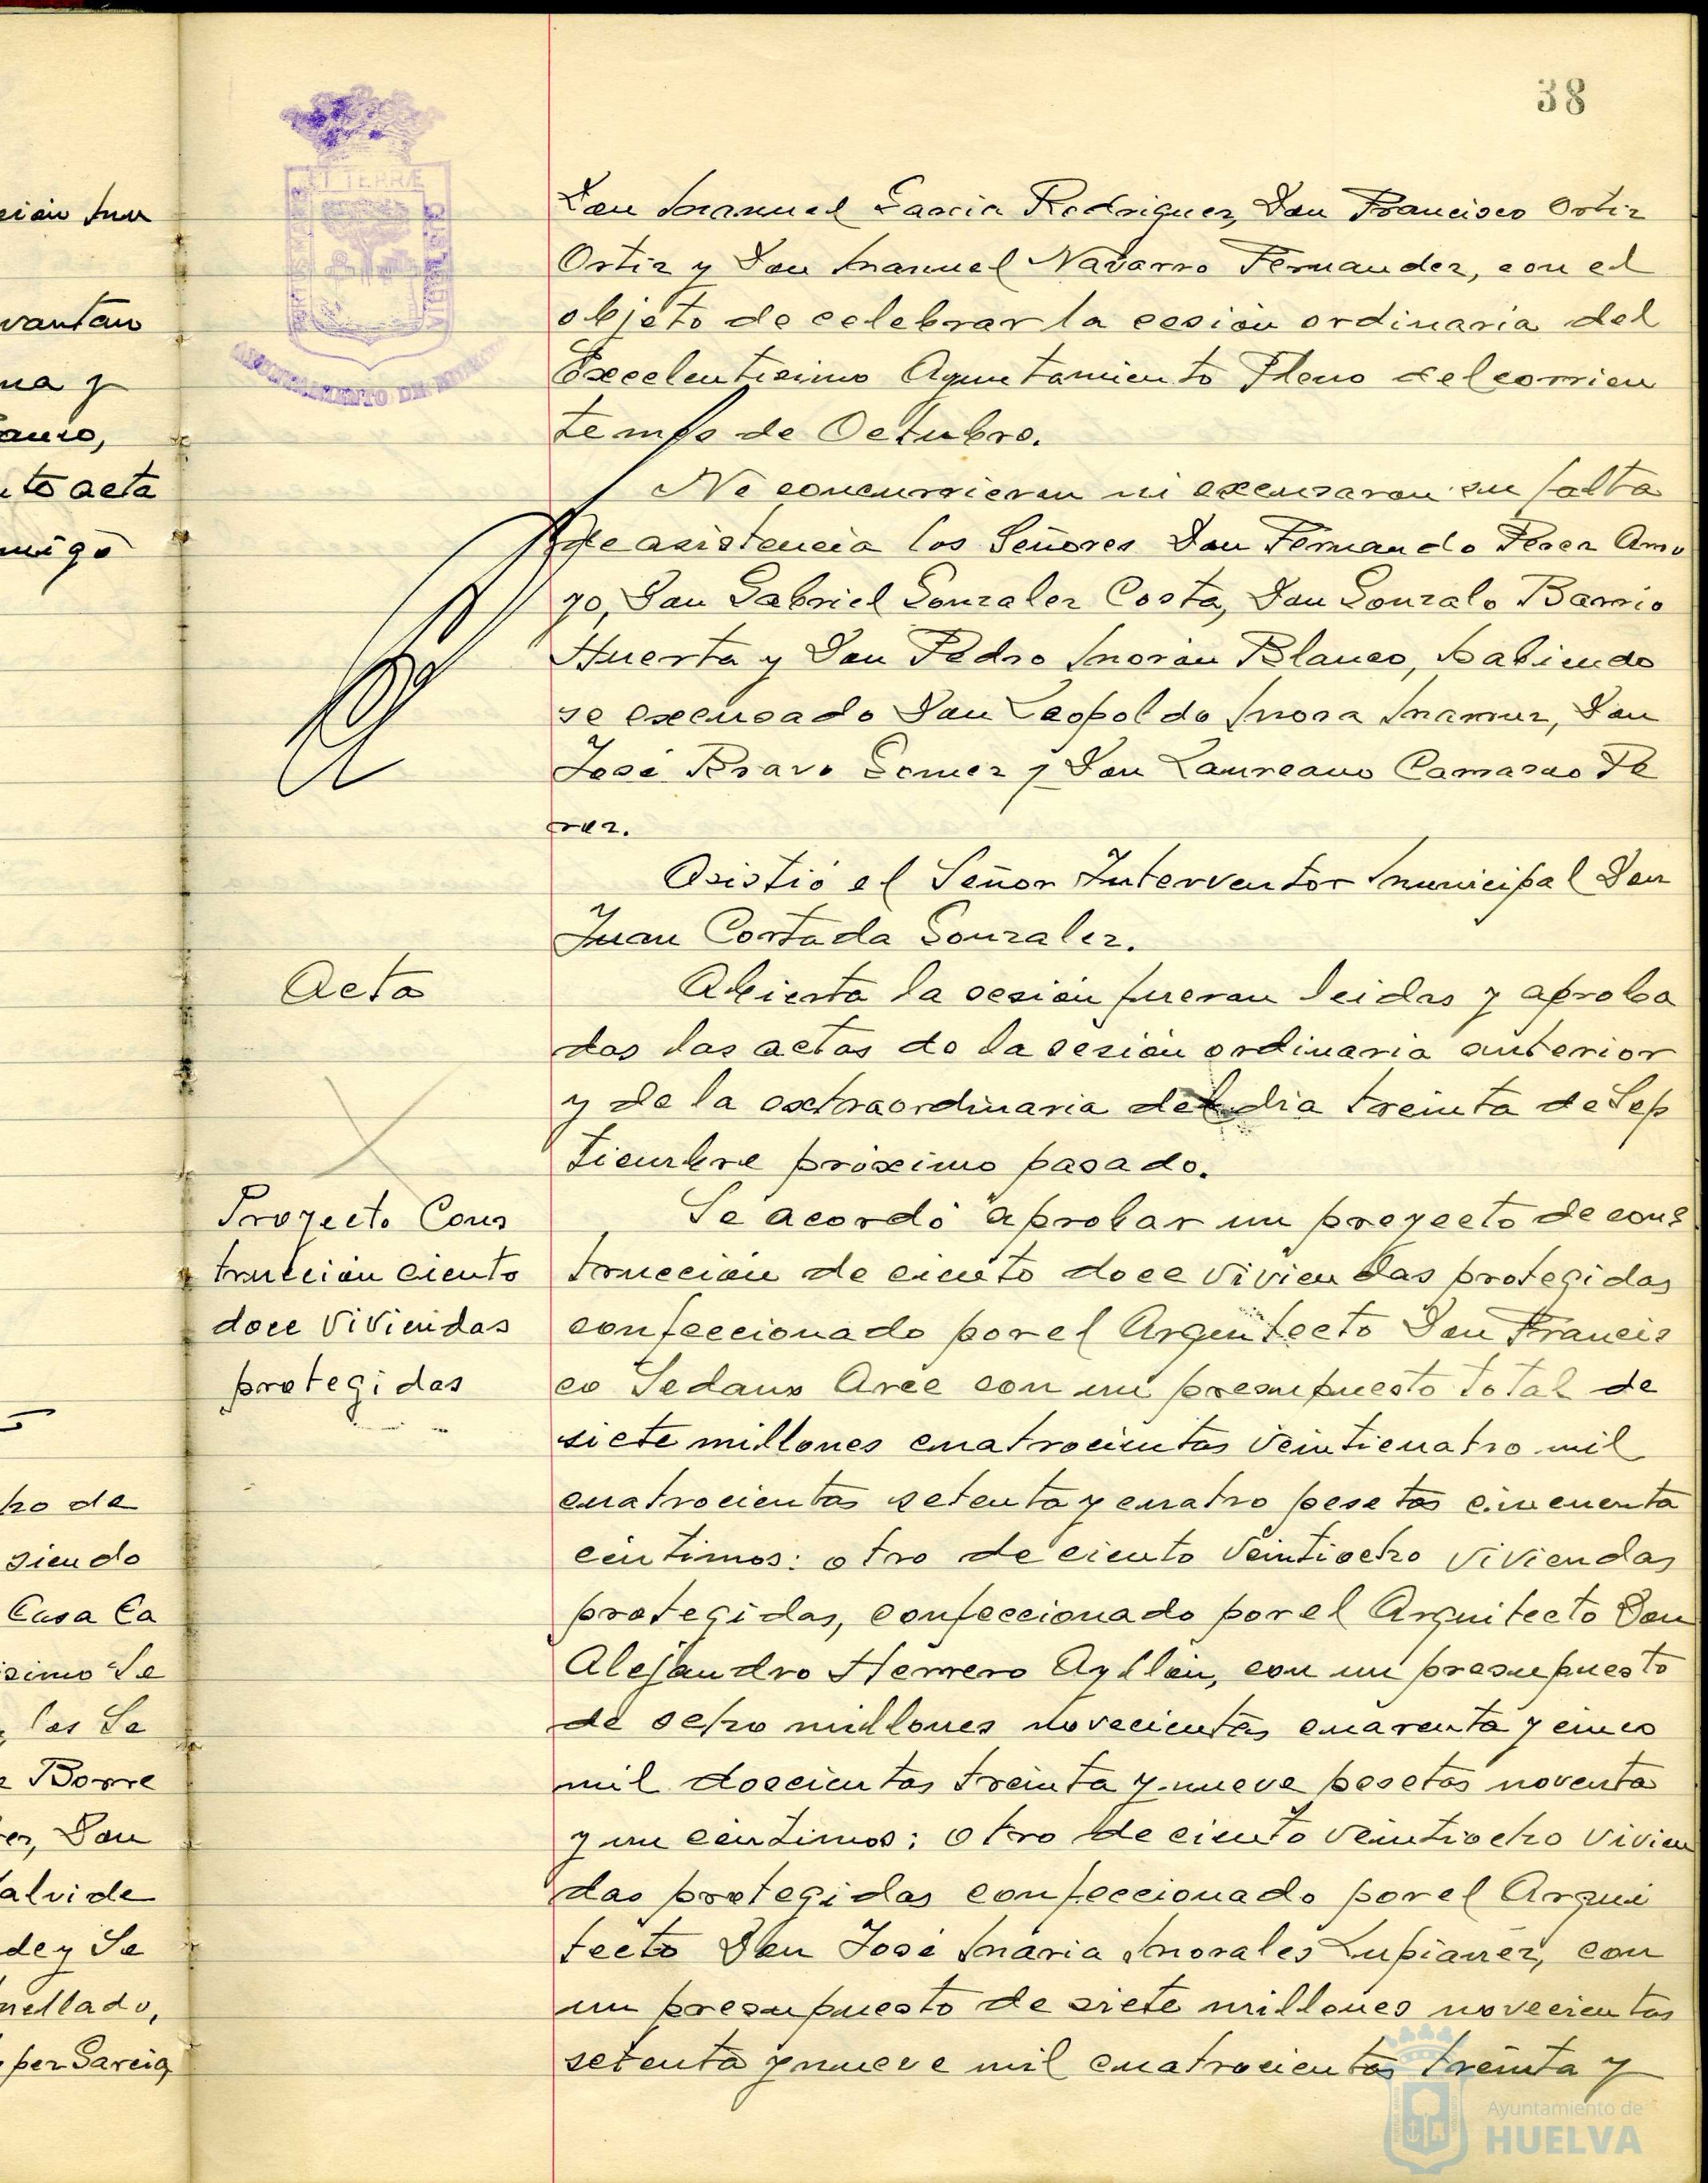 38
ET TERRÆ
Don Manuel Garcia Rodriguez, Don Francisco Ortiz
Ortiz y Don Manuel Navarro Fernandez, con el
objeto de celebrar la sesión ordinaria del
Excelentisimo Ayuntamiento Pleno del corrien
te mes de Octubre.
No concurrieron ni excusaron su falta
de asistencia los Señores Don Fernando Perez
yo, Don Gabriel Gonzalez Costa, Don Gonzalo Barrio
Huerta y Don Pedro Morón Blanco, habiendo
se excusado Don Leopoldo Mora, Don
José Bravo Gomez y Don Laureano Camarao Pe
rez.
Asistió el Señor Interventor Municipal Don
Juan Cortada Gonzalez.
Acta
Abierta la sesión fueron leidas y aproba
das las actas de la sesión ordinaria anterior
y de la extraordinaria del dia treinta de Sep
tiembre próximo pasado.
Proyecto Cons
trucción ciento
doce viviendas
protegidas
Se acordó aprobar un proyecto de cons
trucción de ciento doce viviendas protegidas
confeccionado por el Arquitecto Don Francis
co Sedano Arce con un presupuesto total de
siete millones cuatrocientas veinticuatro mil
cuatrocientas setenta y cuatro pesetas cincuenta
céntimos: otro de ciento veintiocho viviendas
protegidas, confeccionado por el Arquitecto Don
Alejandro Herrero Ayllón, con un presupuesto
de ocho millones novecientas cuarenta y cinco
mil doscientas treinta y nueve pesetas noventa
y un céntimos; otro de ciento veintiocho vivien
das protegidas confeccionado por el Arqui
tecto Don José Maria Morales Lupiañez, con
un presupuesto de siete millones novecientas
setenta y nueve mil cuatrocientas treinta y
vantan
na y
to acta
migo
ho de
siendo
Casa Ca
simo Se
los Se
Borre
ez, Don
alvide
de y Se
mellado,
per Garcia,
Ayuntamiento de
HUELVA